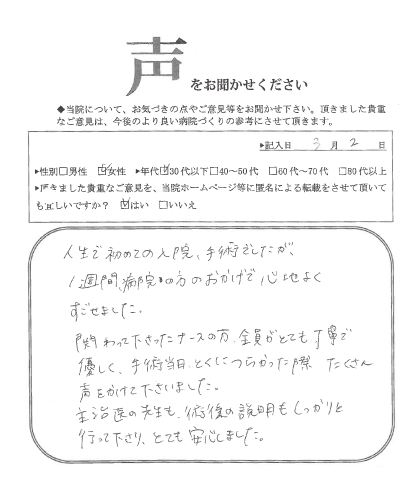 声をお聞かせください
◆当院について、お気づきの点やご意見等をお聞かせ下さい。頂きました貴重
なご意見は、今後のより良い病院づくりの参考にさせて頂きます。
▶記入日 3月2日
▶性別□男性 ☑女性 ▶年代☑30代以下□40～50代 □60代～70代 □80代以上
▶頂きました貴重なご意見を、当院ホームページ等に匿名による転載をさせて頂いて
も宜しいですか? ☑はい □いいえ
人生で初めての入院、手術でしたが、
1週間、病院の方のおかげで心地よく
すごせました。
関わって下さったナースの方、全員がとても丁寧で
優しく、手術当日、とくにつらかった際 たくさん
声をかけて下さいました。
主治医の先生も、術後の説明もしっかりと
行って下さり、とても安心しました。